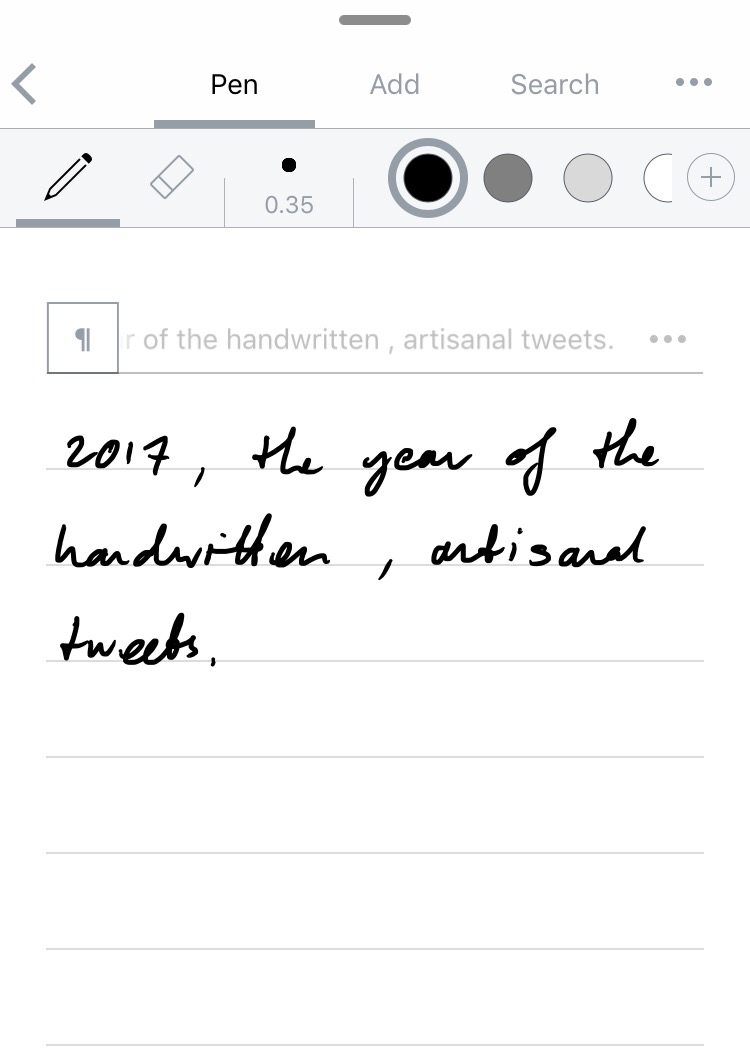 Pen Add Search
0.35
¶ r of the handwritten , artisanal tweets.
2017, the year of the
handwritten , artisanal
tweets.